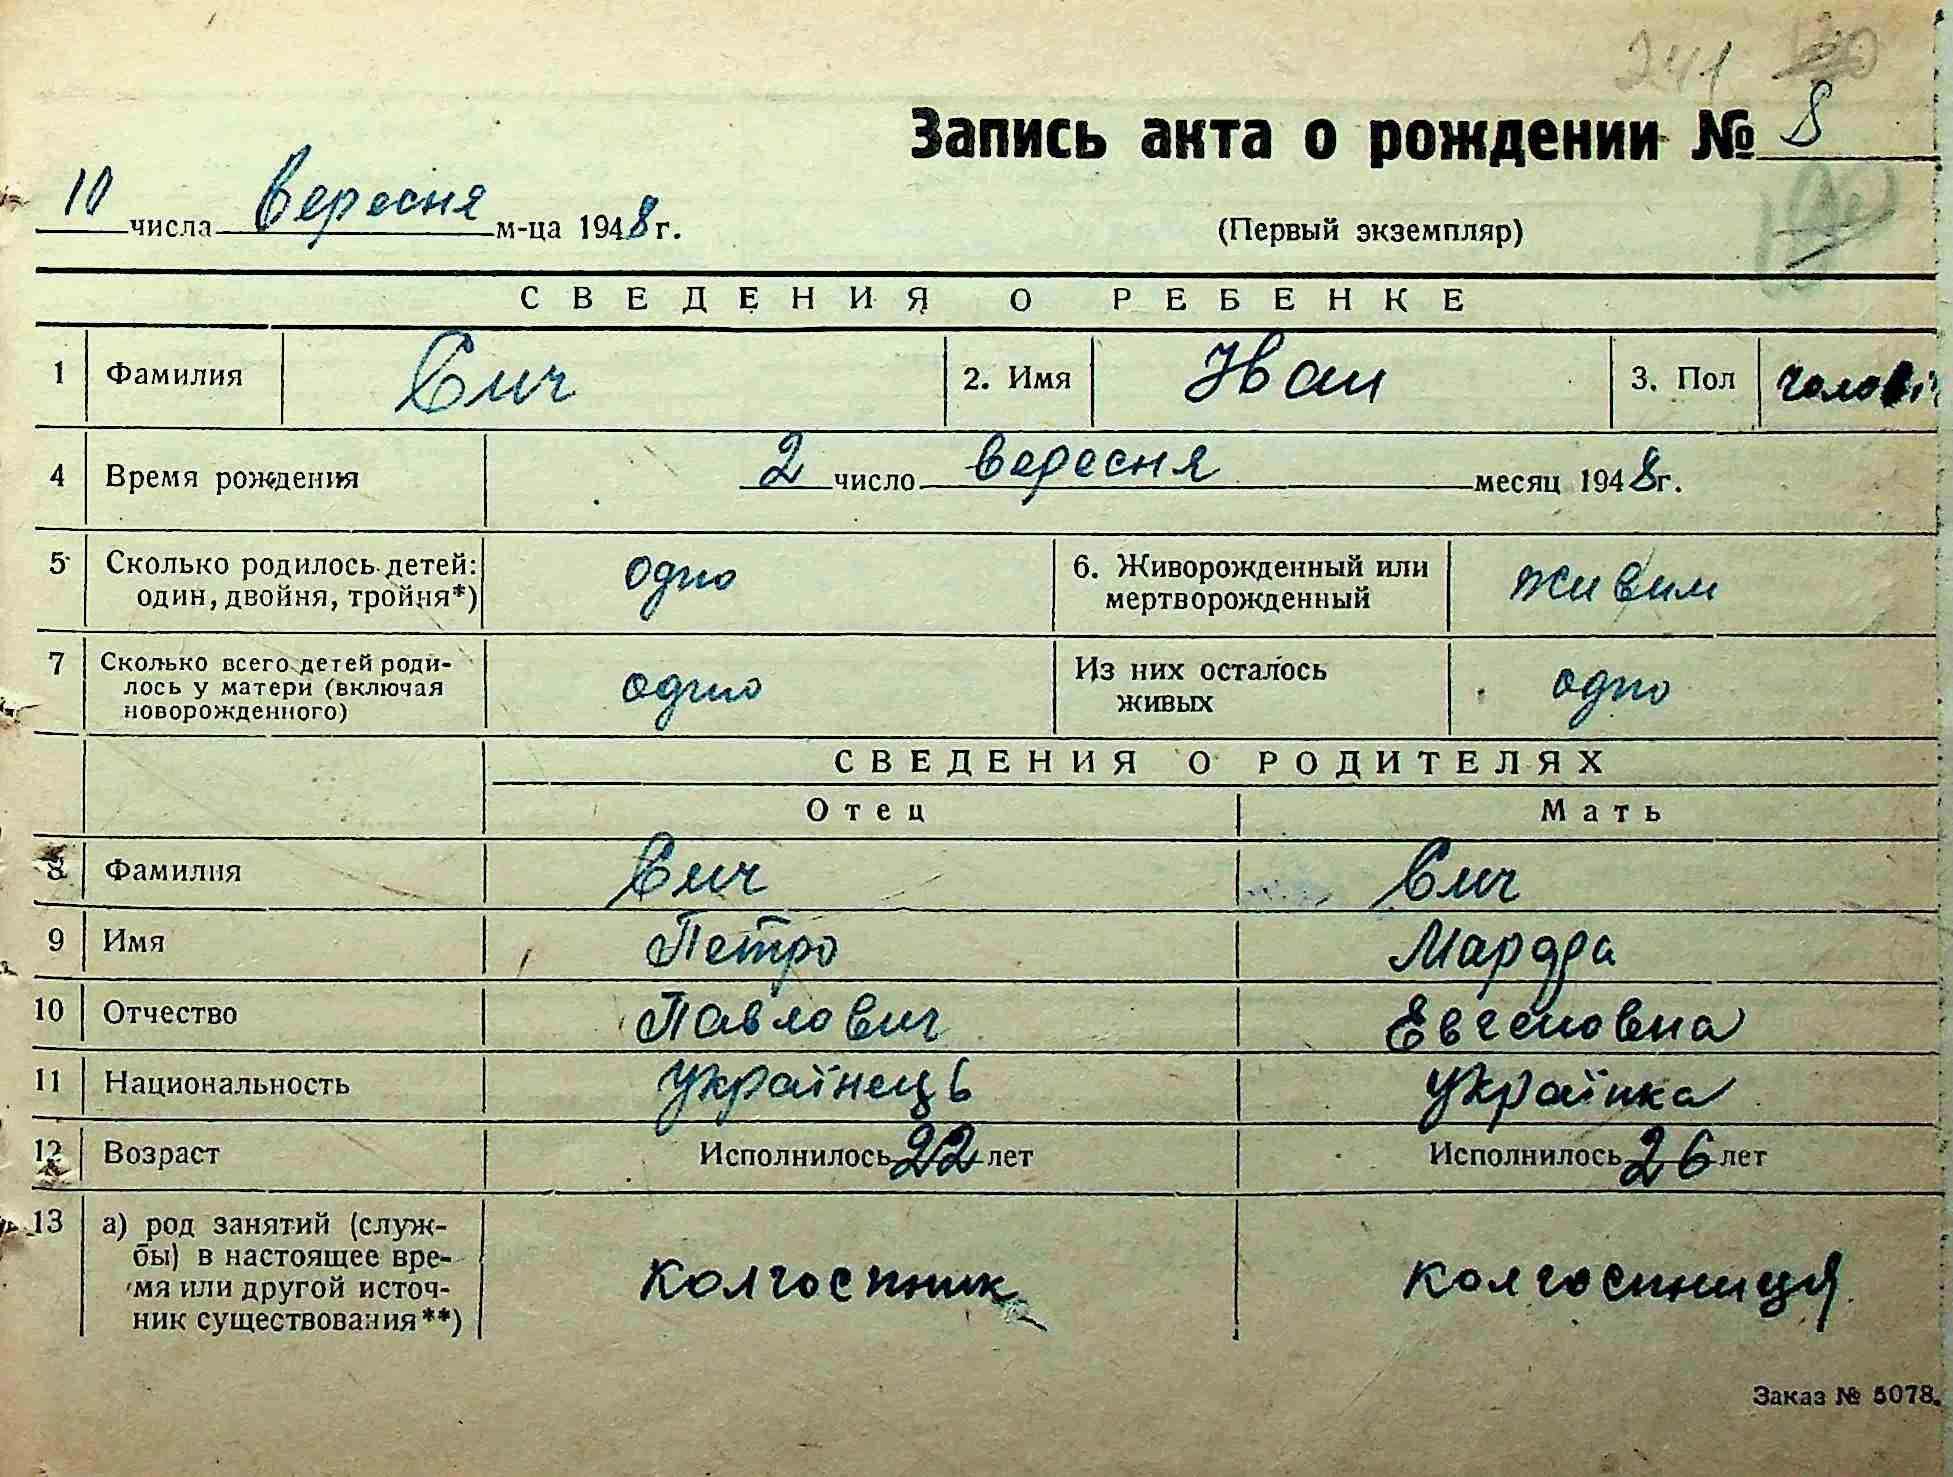 241
Запись акта о рождении № 8
10 числа вересня м-ца 1948 г.
(Первый экземпляр)
СВЕДЕНИЯ О РЕБЕНКЕ
1 Фамилия 2. Имя Иван 3. Пол чолові
4 Время рождения 2 число вересня месяц 1948 г.
5 Сколько родилось детей: один, двойня, тройня*) одно 6. Живорожденный или мертворожденный живим
7 Сколько всего детей роди-
лось у матери (включая
новорожденного) одно Из них осталось живых одно
СВЕДЕНИЯ О РОДИТЕЛЯХ
Отец Мать
8 Фамилия
9 Имя Петро Мардра
10 Отчество Павлович Евгеновна
11 Национальность українець українка
12 Возраст Исполнилось 22 лет Исполнилось 26 лет
13 а) род занятий (служ-
бы) в настоящее вре-
мя или другой источ-
ник существования**) колгоспник колгоспниця
Заказ № 5078.